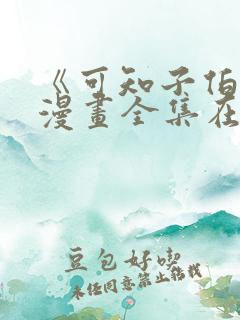 《可知子伯
漫畫全集在
豆包好喫
未经同意禁止转载